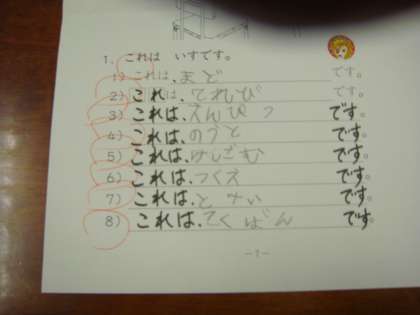 1. これは いすです。
1) これは、まど です。
2) これは、てれび です。
3) これは、えんぴつ です。
4) これは、のうと です。
5) これは、けしごむ です。
6) これは、つくえ です。
7) これは、と です。
8) これは、こくばん です。
-1-